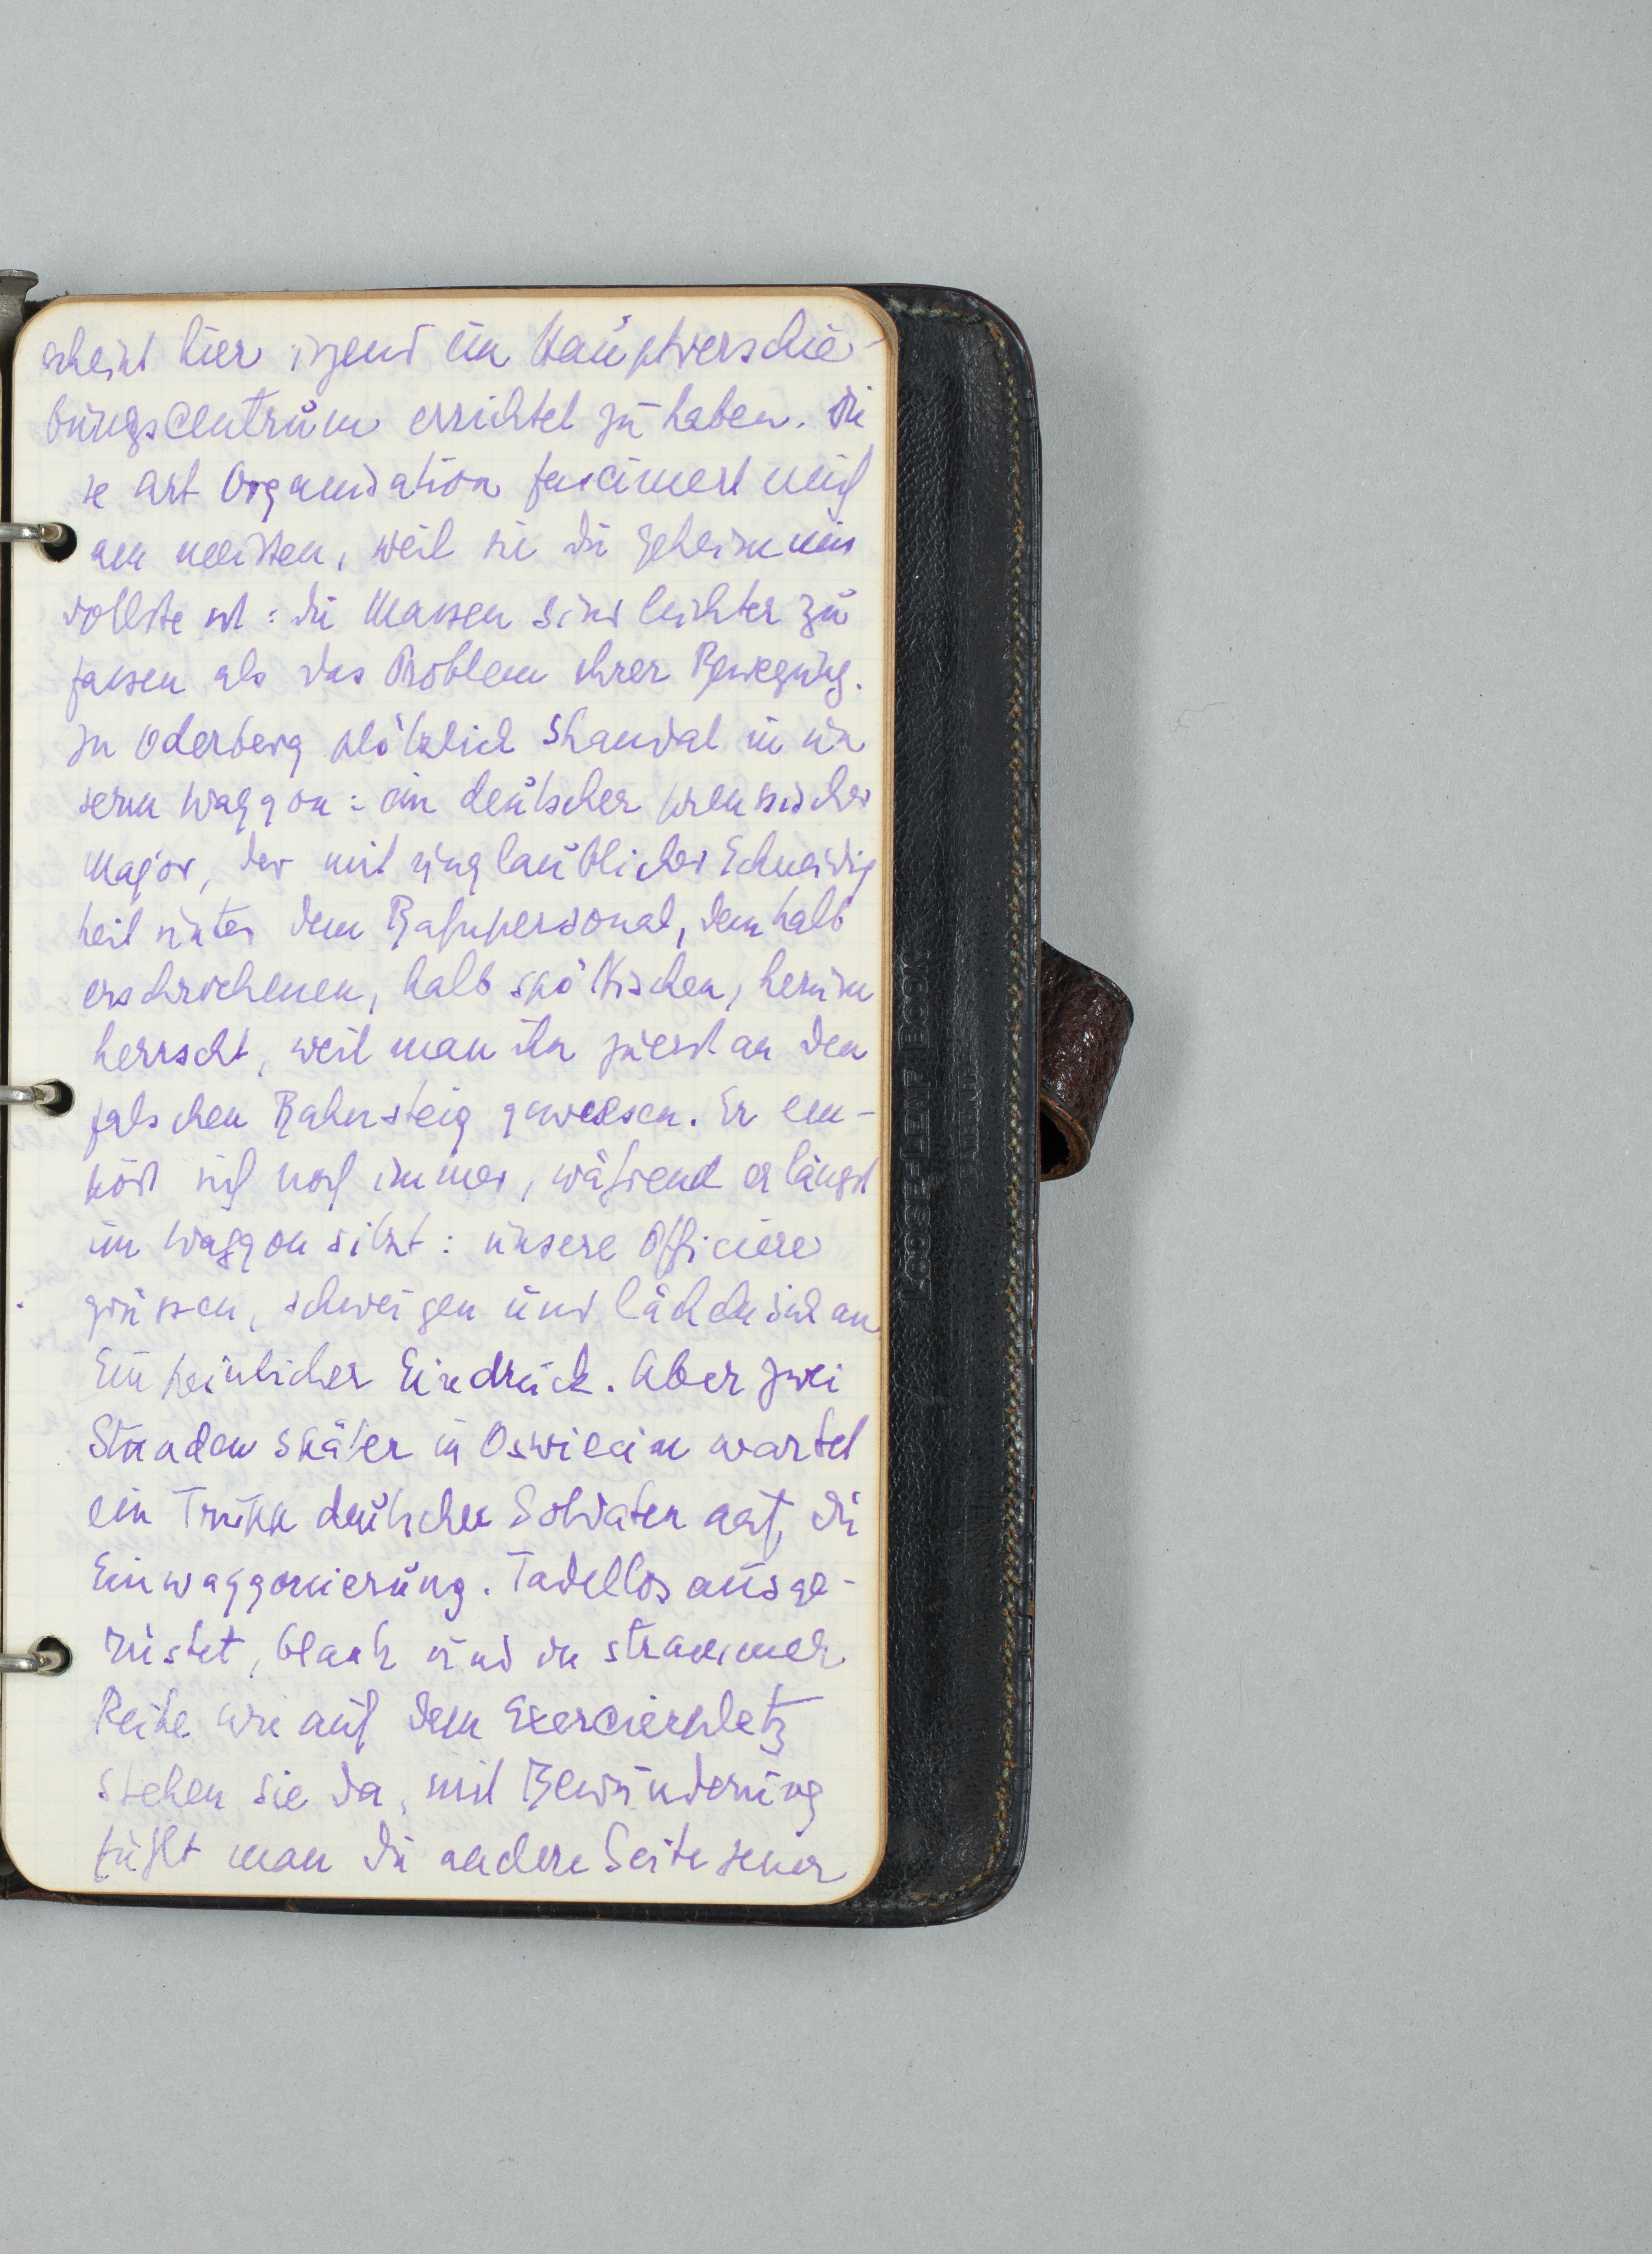 scheint hier irgend ein Hauptverschie-
bungscentrum errichtet zu haben. Die
se Art Organisation fasciniert mich
am meisten, weil sie die geheimnis
vollste ist: die Massen sind leichter zu
fassen als das Problem ihrer Bewegung.
In Oderberg plötzlich Skandal in un
serm Waggon: ein deutscher preussischer
Major, der mit unglaublicher Schneidig
keit unter dem Bahnpersonal, dem halb
erschrockenen, halb spöttischen, herum
herrscht, weil man ihn zuerst an den
falschen Bahnsteig gewiesen. Er em-
pört sich noch immer, während er längst
im Waggon sitzt: unsere Officiere
grüssen, schweigen und lächeln sich an
Ein peinlicher Eindruck. Aber zwei
Stunden später in Oswiecim wartet
ein Trupp deutscher Soldaten auf die
Einwaggonierung. Tadellos ausge-
rüstet, blank und in strammer
Reihe wie auf dem Exercierplatz
stehen sie da, mit Bewunderung
fühlt man die andere Seite jener
LOOSE-LEAF BOOK